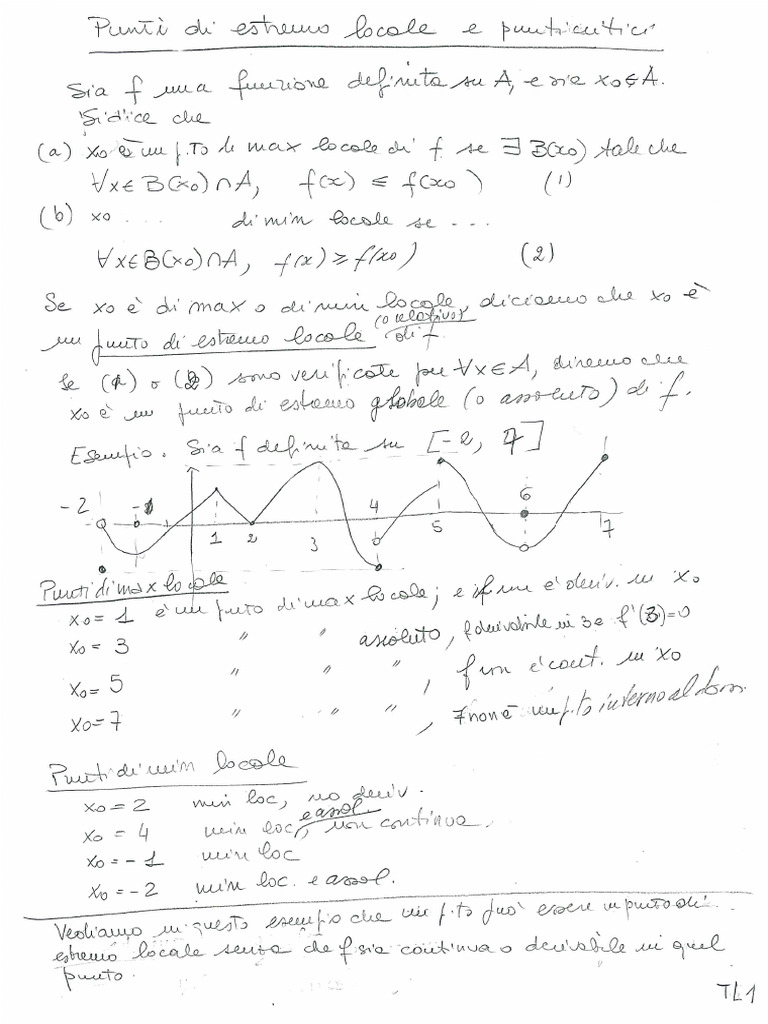 Punti di estremo locale e punti critici
Sia f una funzione definita su A, e sia x0 ∈ A.
Si dice che
(a) x0 è un p.to di max locale di f se ∃ B(x0) tale che
∀x ∈ B(x0) ∩ A, f(x) ≤ f(x0) (1)
(b) x0 ... di min locale se ...
∀x ∈ B(x0) ∩ A, f(x) ≥ f(x0) (2)
Se x0 è di max o di min locale, diciamo che x0 è
(o relativo)
un punto di estremo locale di f.
Se (1) o (2) sono verificate per ∀x ∈ A, diremo che
x0 è un punto di estremo globale (o assoluto) di f.
Esempio. Sia f definita su [-2, 7]
-2 -1 1 2 3 4 5 6 7
Punti di max locale
x0 = 1 è un punto di max locale; e if non è deriv. in x0
x0 = 3 " " assoluto, f derivabile in 3 e f'(3)=0
x0 = 5 " " " , f non è cont. in x0
x0 = 7 " " " , 7 non è un p.to interno al dom.
Punti di min locale
x0 = 2 min loc, no deriv.
e assol.
x0 = 4 min loc, non continua.
x0 = -1 min loc
x0 = -2 min loc. e assol.
Vediamo in questo esempio che un p.to può essere un punto di
estremo locale senza che f sia continua o derivabile in quel
punto.
TL1